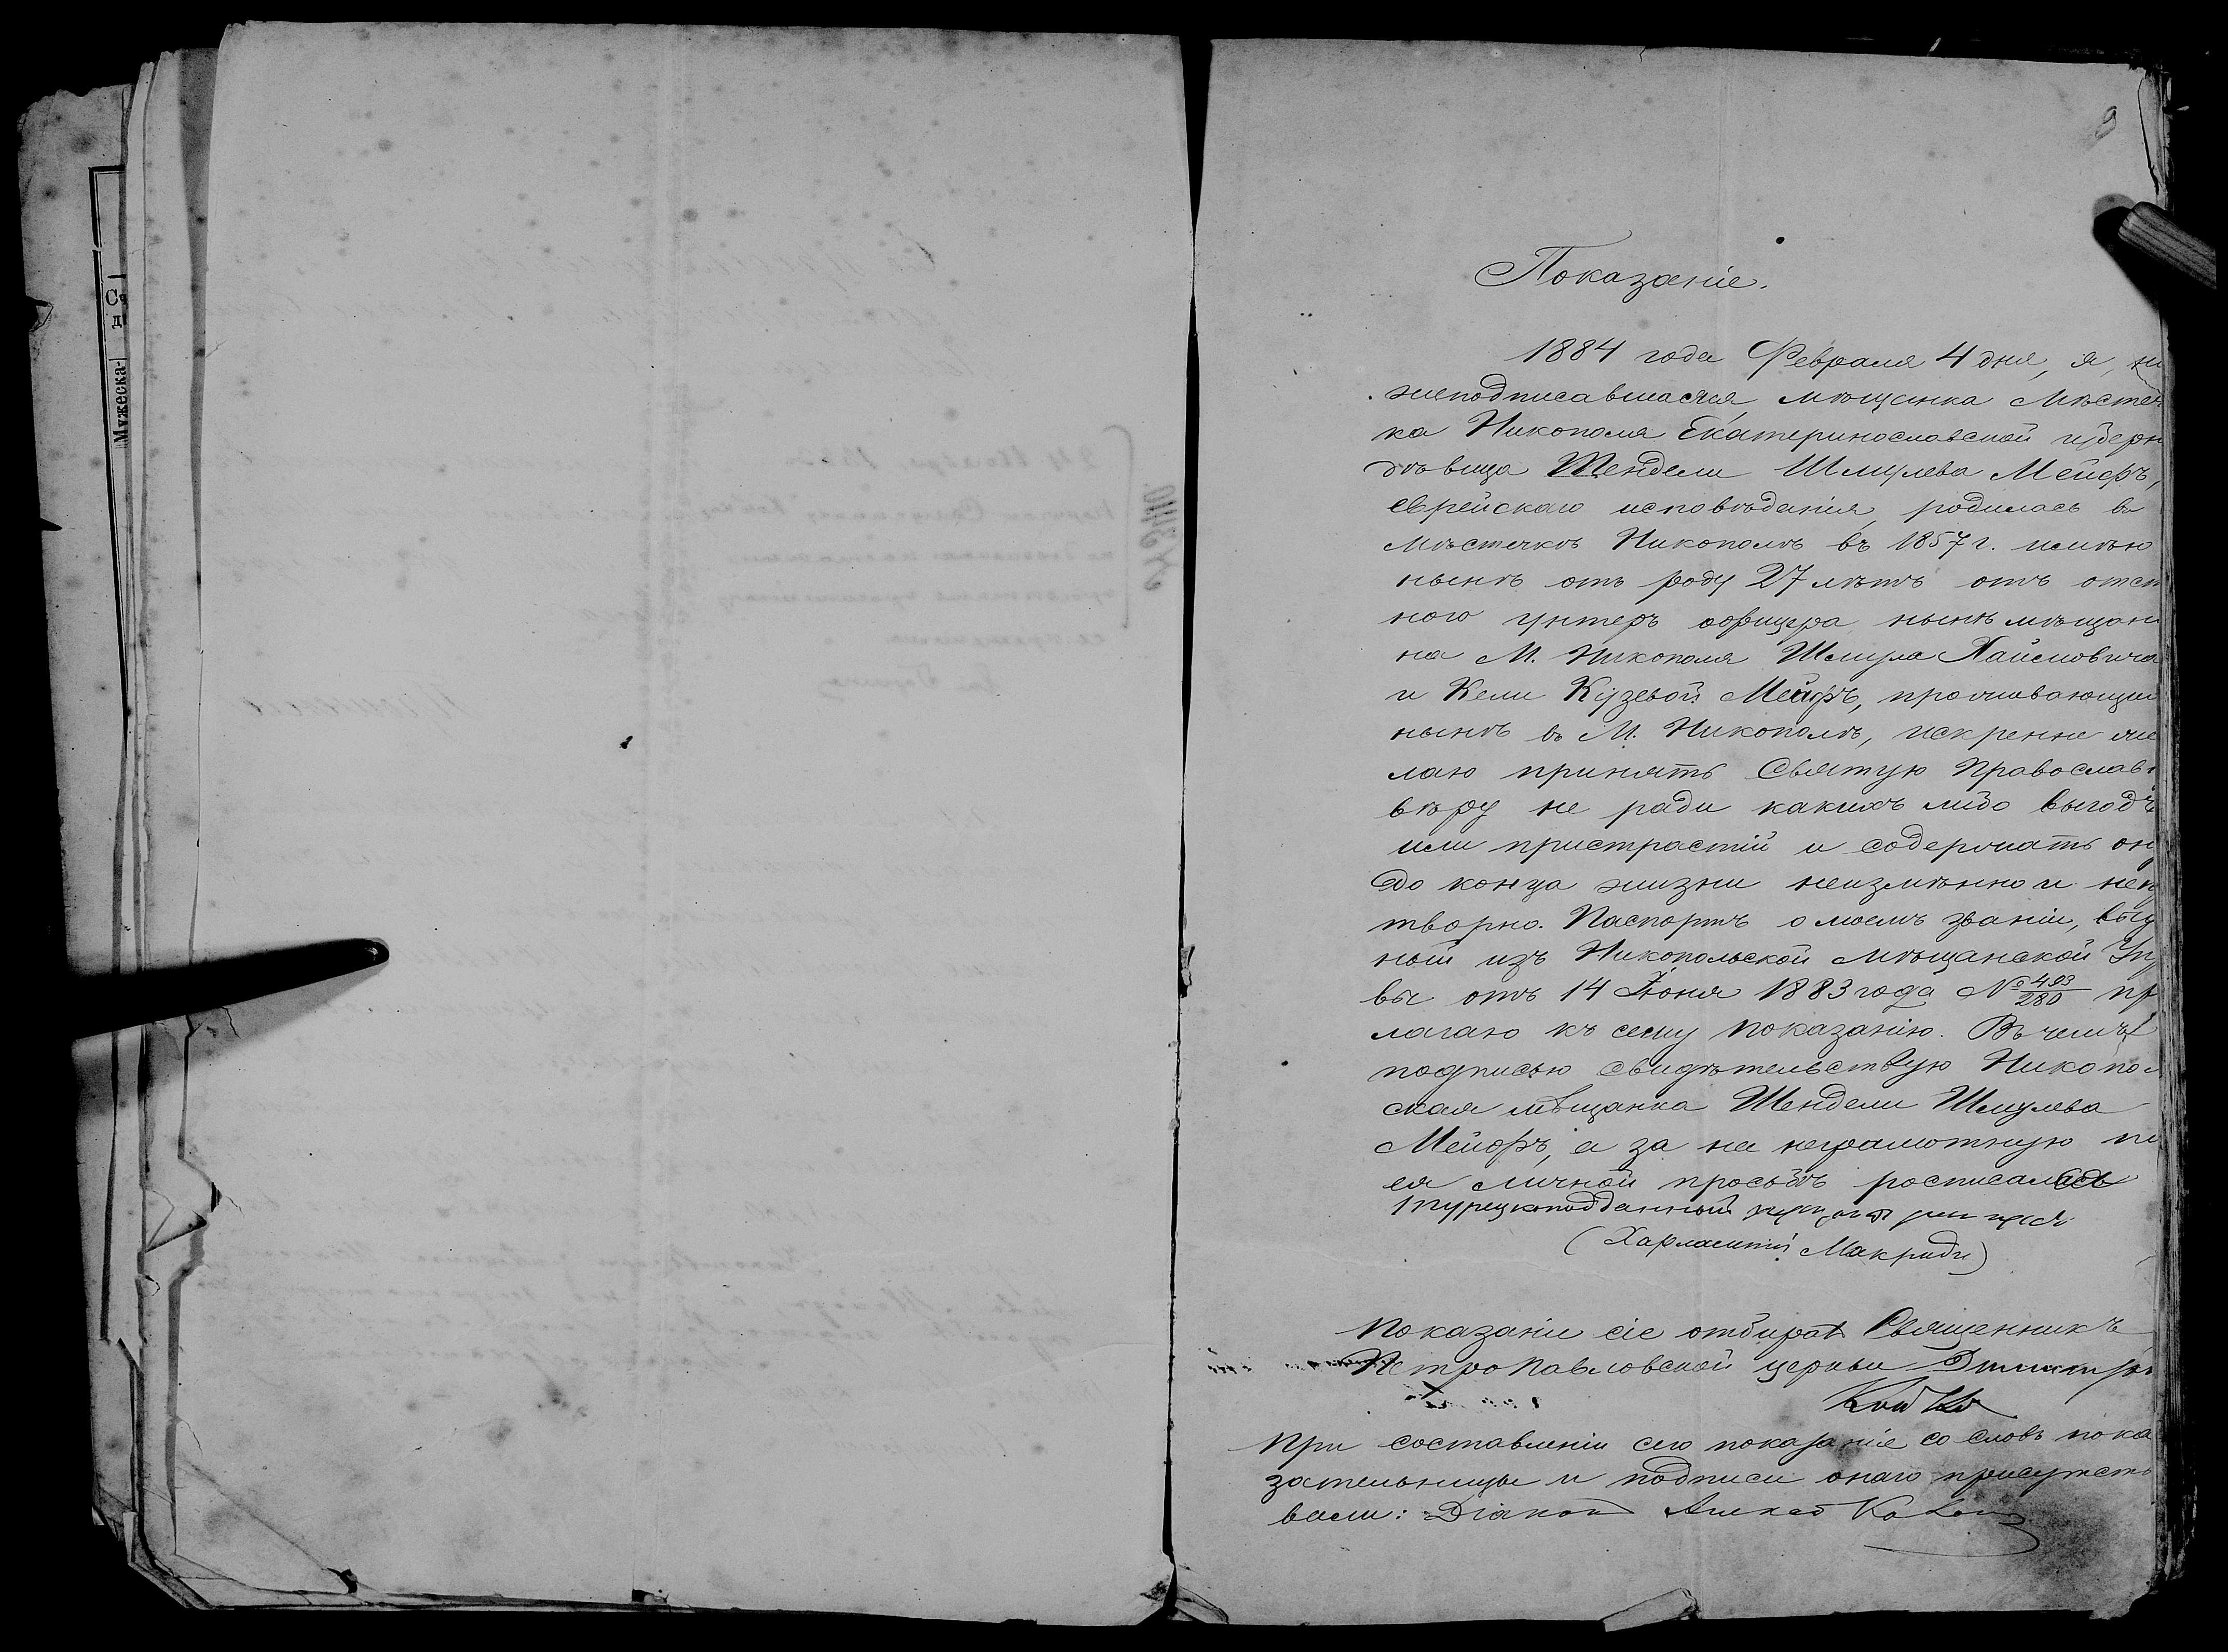 Ся
д
Мужеска-
Показаніе.
1884 года Февраля 4 дня, я, ни
жеподписавшаяся, мѣщанка Мѣстеч
ка Никополя Екатеринославской губерн
дѣвица Шендели Шмулева Мейфъ,
еврейскаго исповѣданія, родилась въ
Мѣстечкѣ Никополѣ въ 1857 г. имѣю
нынѣ отъ роду 27 лѣтъ отъ отст
ного унтеръ офицера нынѣ мѣщани
на М. Никополя Шмула Хаимовича
и Кели Кузевой Мейфъ, проживающи
нынѣ въ М. Никополѣ, искренне же
лаю принять Святую Православн
вѣру не ради какихъ либо выгодъ
или пристрастій и содержать он
до конца жизни неизмѣнно и неп
творно. Паспортъ о моемъ званіи, выд
ный изъ Никопольской Мѣщанской Уп
вы отъ 14 Іюня 1883 года № 493/280 пр
лагаю къ сему показанію. Въ чемъ
подписью свидѣтельствую Никопол
ская мѣщанка Шендели Шмулева
Мейфъ, а за не неграмотную по
ея личной просьбѣ росписался
турецкоподданный
(Харлампий Макриди)
Показаніе сіе отбиралъ Священникъ
Петропавловской церкви Димитрі
При составленіи сего показанія со словъ пока
зательницы и подписи онаго присутств
вали: Діаконъ